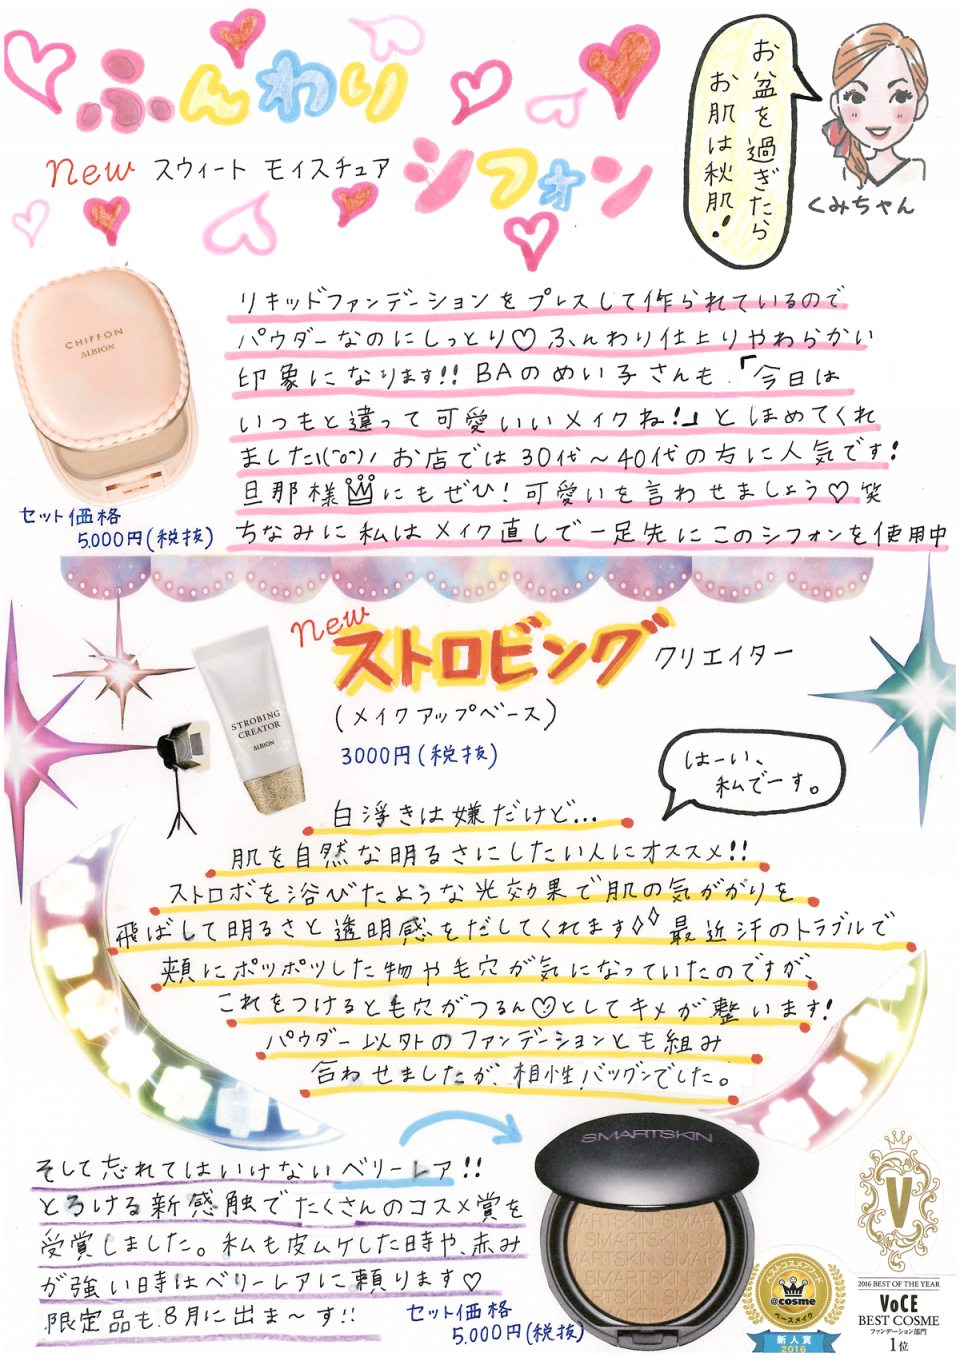 ふんわり
new スウィート モイスチュア
シフォン
お盆を過ぎたら
お肌は秋肌!
くみちゃん
CHIFFON
ALBION
リキッドファンデーションをプレスして作られているので
パウダーなのにしっとり♡ふんわり仕上りやわらかい
印象になります!! BAのめい子さんも「今日は
いつもと違って可愛いいメイクね!」とほめてくれ
ました\(^o^)/ お店では30代〜40代の方に人気です!
旦那様👑にもぜひ!可愛いを言わせましょう♡笑
ちなみに私はメイク直しで一足先にこのシフォンを使用中
セット価格
5,000円(税抜)
new
ストロビング クリエイター
(メイクアップベース)
3000円(税抜)
STROBING
CREATOR
ALBION
はーい、
私でーす。
白浮きは嫌だけど...
肌を自然な明るさにしたい人にオススメ!!
ストロボを浴びたような光効果で肌の気がかりを
飛ばして明るさと透明感をだしてくれます◊◊ 最近汗のトラブルで
頬にポッポッした物や毛穴が気になっていたのですが、
これをつけると毛穴がつるん♡としてキメが整います!
パウダー以外のファンデーションとも組み
合わせましたが、相性バツグンでした。
そして忘れてはいけないベリーレア!!
とろける新感触でたくさんのコスメ賞を
受賞しました。私も皮ムケした日時や、赤み
が強い日時はベリーレアに頼ります♡
限定品も8月に出ま〜す!!
セット価格
5,000円(税抜)
SMARTSKIN
MARTSKIN SMAR
SMARTSKIN
ベストコスメアワード
@cosme
ベースメイク
新人賞
2016
V
2016 BEST OF THE YEAR
VoCE
BEST COSME
ファンデーション部門
1位